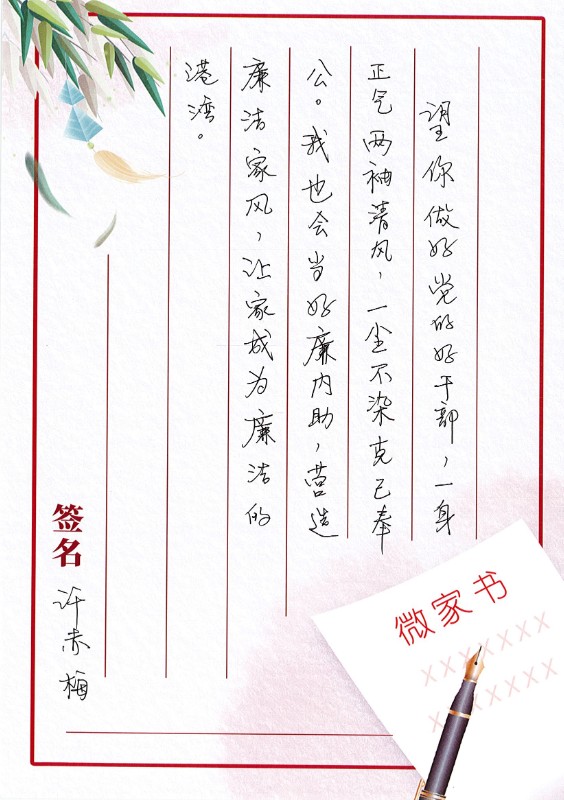 望你做好党的好干部，一身
正气两袖清风，一尘不染克己奉
公。我也会当好廉内助，营造
廉洁家风，让家成为廉洁的
港湾。
签名 许赤梅
微家书
XXXXXXX
XXXXXXX